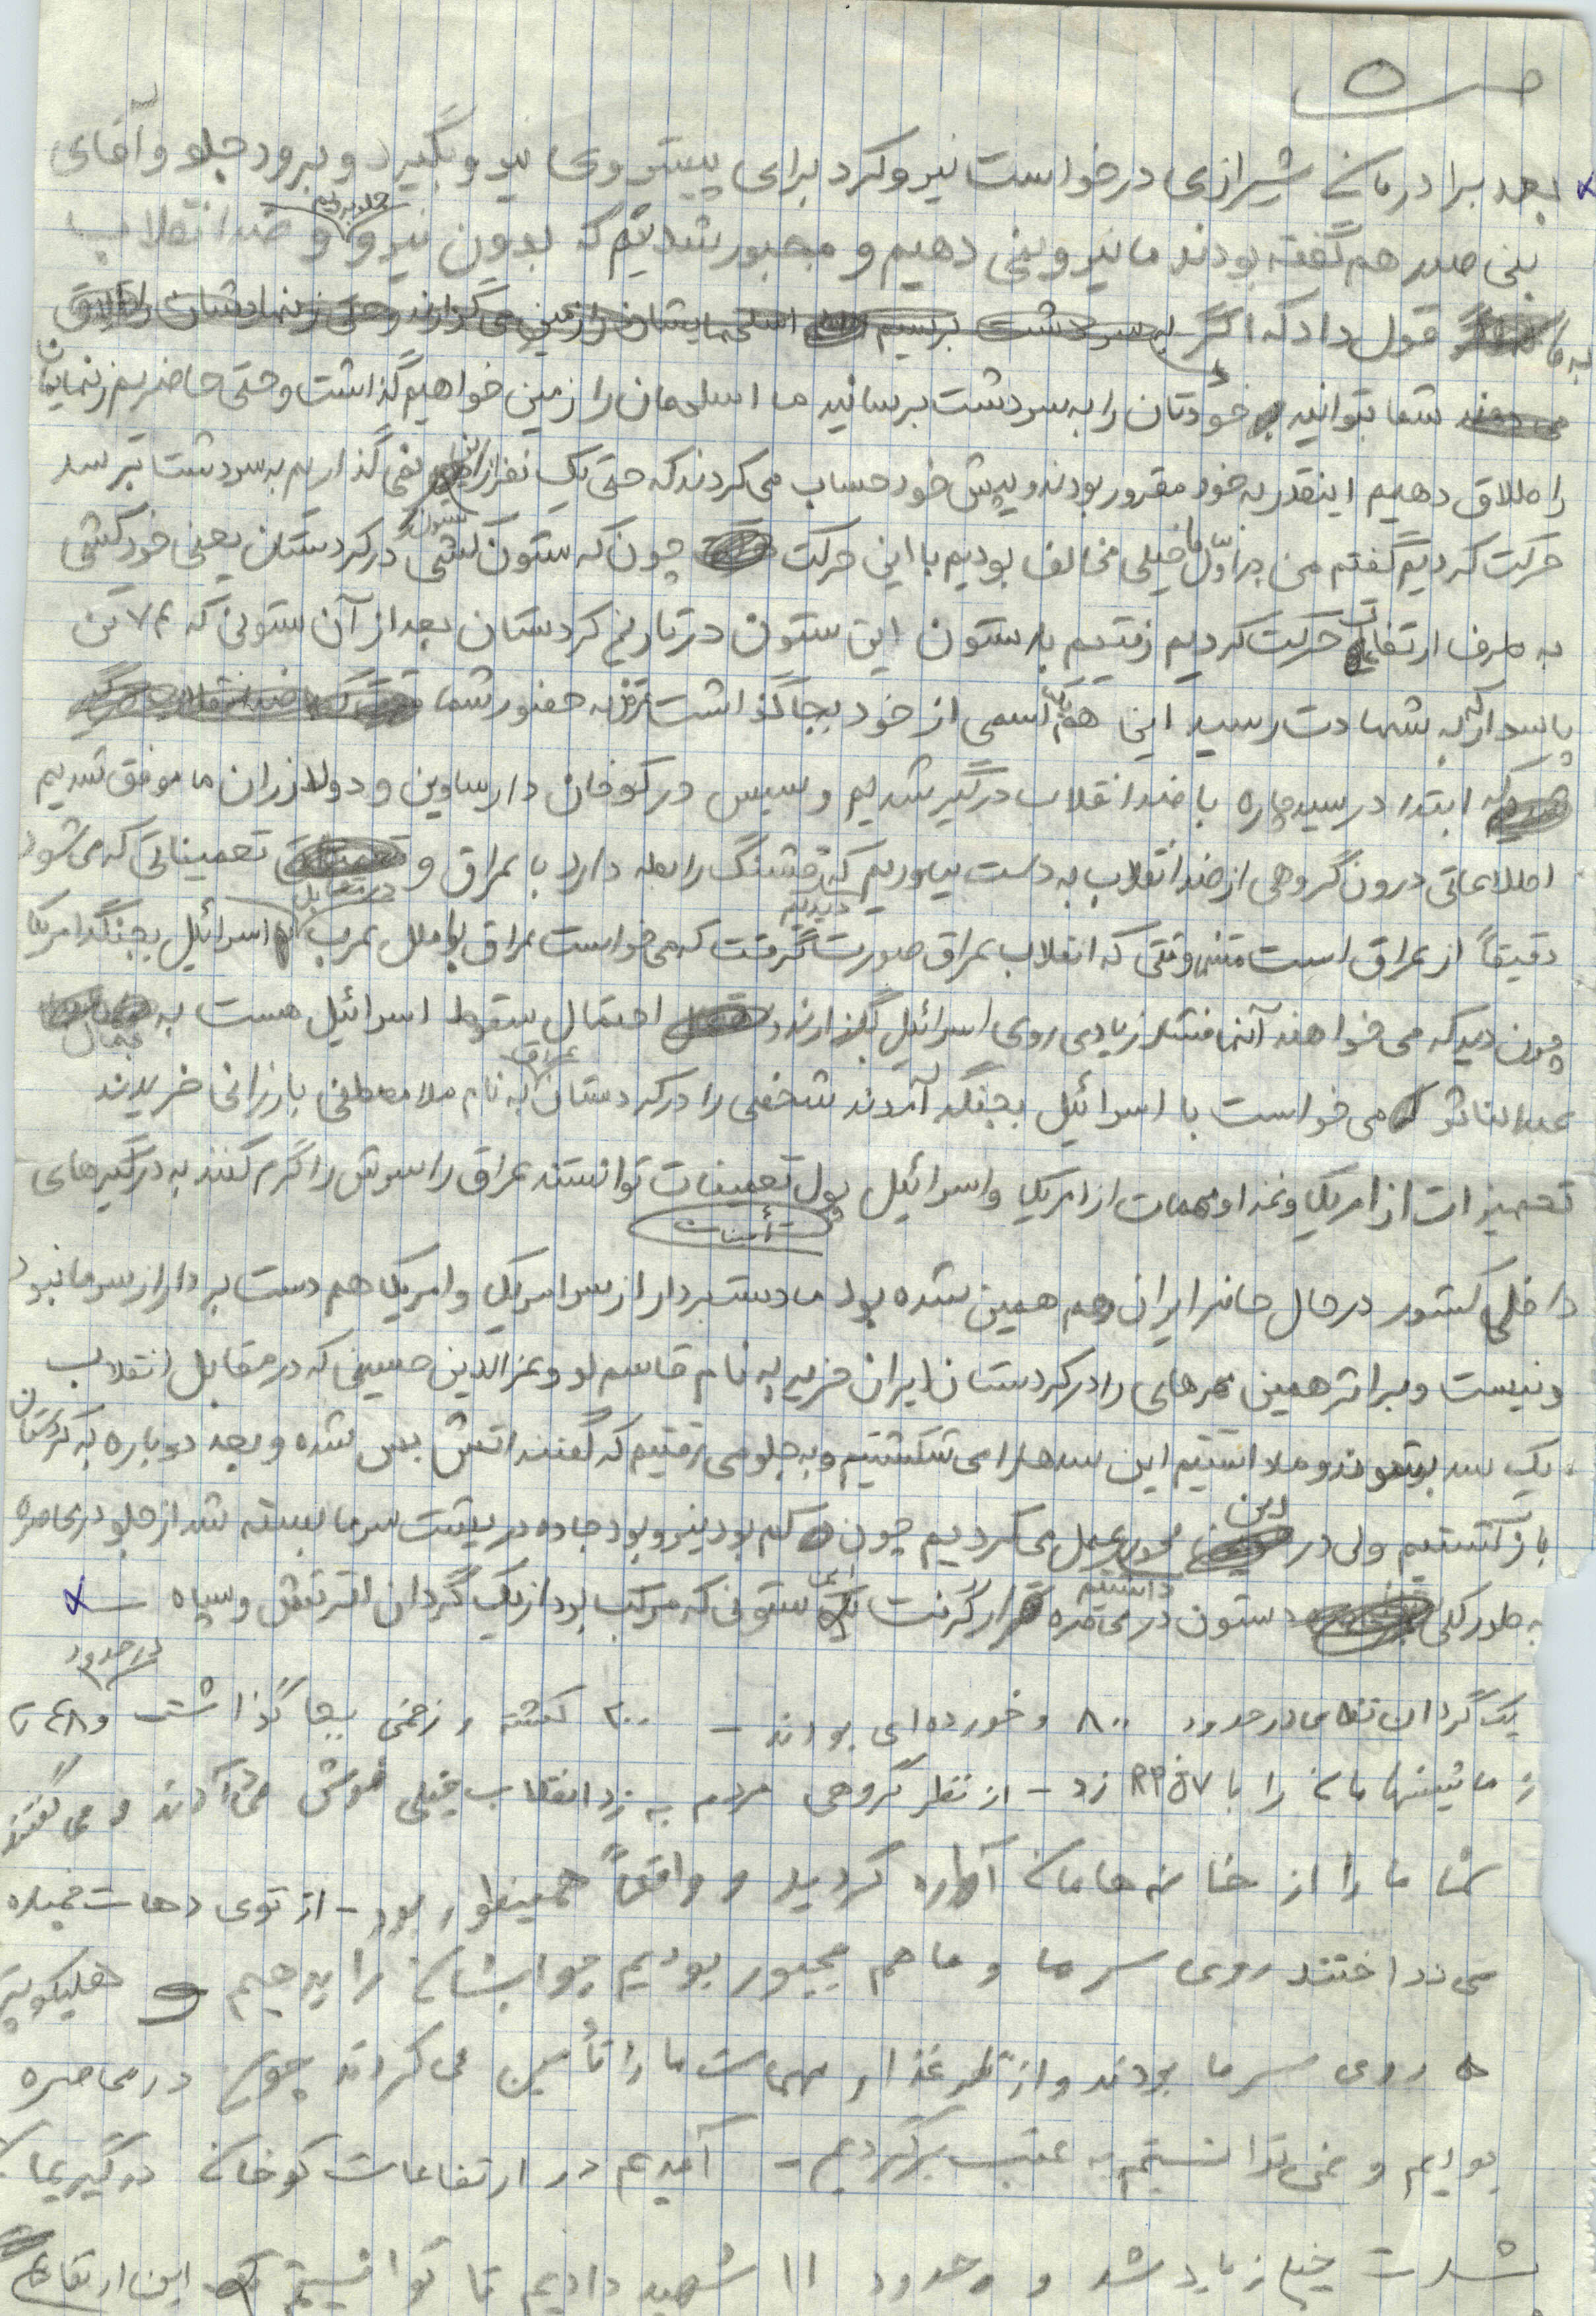 بعد برادرمان شیرازی درخواست نیرو کرد برای پیشروی نیرو بگیرد و برود جلو و آقای
بنی صدر هم گفته بودند ما نیرو نمی دهیم و مجبور شدیم که بدون نیرو جلو برویم و ضد انقلاب
به ما قول داد که اگر
شما بتوانید خودتان را به سردشت برسانید ما اسلحه‌مان را زمین خواهیم گذاشت و حتی حاضریم زنهایمان
را طلاق دهیم اینقدر به خود مغرور بودند و پیش خود حساب می کردند که حتی یک نفر از اینها نمی گذاریم به سردشت برسد
حرکت کردیم گفتم من در اوّل ما خیلی مخالف بودیم با این حرکت چون که ستون کشی در کردستان یعنی خودکشی
به طرف ارتفاعات حرکت کردیم رفتیم با ستون این ستون در تاریخ کردستان بعد از آن ستونی که ۷۴ تن
پاسدار که به شهادت رسید این هم یک اسمی از خود بجا گذاشت عرض به حضور شما
که ابتدا در سیدچاره با ضد انقلاب درگیر شدیم و سپس در کوخان دارساوین و دولازران ما موفق شدیم
اطلاعاتی درون گروهی از ضد انقلاب به دست بیاوریم که قشنگ رابطه دارد با عراق و تجهیزاتی که می شود
دقیقاً از عراق است وقتی که انقلاب عراق صورت گرفت دیدیم که می خواست عراق با ملل عرب در مقابل اسرائیل بجنگد امریکا
چون دید که می خواهند آنها فشار زیادی روی اسرائیل بگذارند احتمال سقوط اسرائیل هست به جمال
عبدالناصر که می خواست با اسرائیل بجنگد آمدند شخصی را در کردستان عراق به نام ملا مصطفی بارزانی خریدند
تجهیزات از امریکا و غذا و مهمات از امریکا و اسرائیل پول تجهیزات توانستند عراق را سرش را گرم کنند به درگیرهای
داخلی کشور در حال حاضر ایران هم همین شده بود ما دست بردار از سر امریکا و امریکا هم دست بردار از سر ما نبود
و نیست و براثر همین مهرهای را در کردستان ایران خرید به نام قاسم لو و عزالدین حسینی که در مقابل انقلاب
یک سد بشوند و ما داشتیم این سدها را می شکستیم و به جلو می رفتیم که گفتند آتش بس شده و بعد دوباره به کردستان
بازگشتیم ولی در این عمل می کردیم چون کم بود نیرو بود جاده در پشت سر ما بسته شد از جلو در محاصره
به طور کلی ستون در محاصره قرار گرفت داشتیم این ستونی که مرکب بود از یک گردان ارتش و سپاه
یک گردان نظامی در حدود ۸۰۰ و خورده ای بودند – ۲۰۰ کشته و زخمی بجا گذاشت و در حدود ۴۸ تا
از ماشینهامان را با RPG7 زد – از نظر گروهی مردم به ضد انقلاب خیلی فوش می دادند و می گفتند
شما ما را از خانه هامان آواره کردید و واقعاً همینطور بود – از توی دهات خمپاره
می انداختند روی سر ما و ما هم مجبور بودیم جوابشان را بدهیم و هلیکوپتر
ها روی سر ما بودند و از نظر غذا و مهمات ما را تأمین می کردند چون در محاصره
بودیم و نمی توانستیم به عقب برگردیم – آمدیم در ارتفاعات کوخان درگیریمان
شدت خیلی زیاد شد و حدود ۱۱ شهید دادیم تا توانستیم این ارتفاع